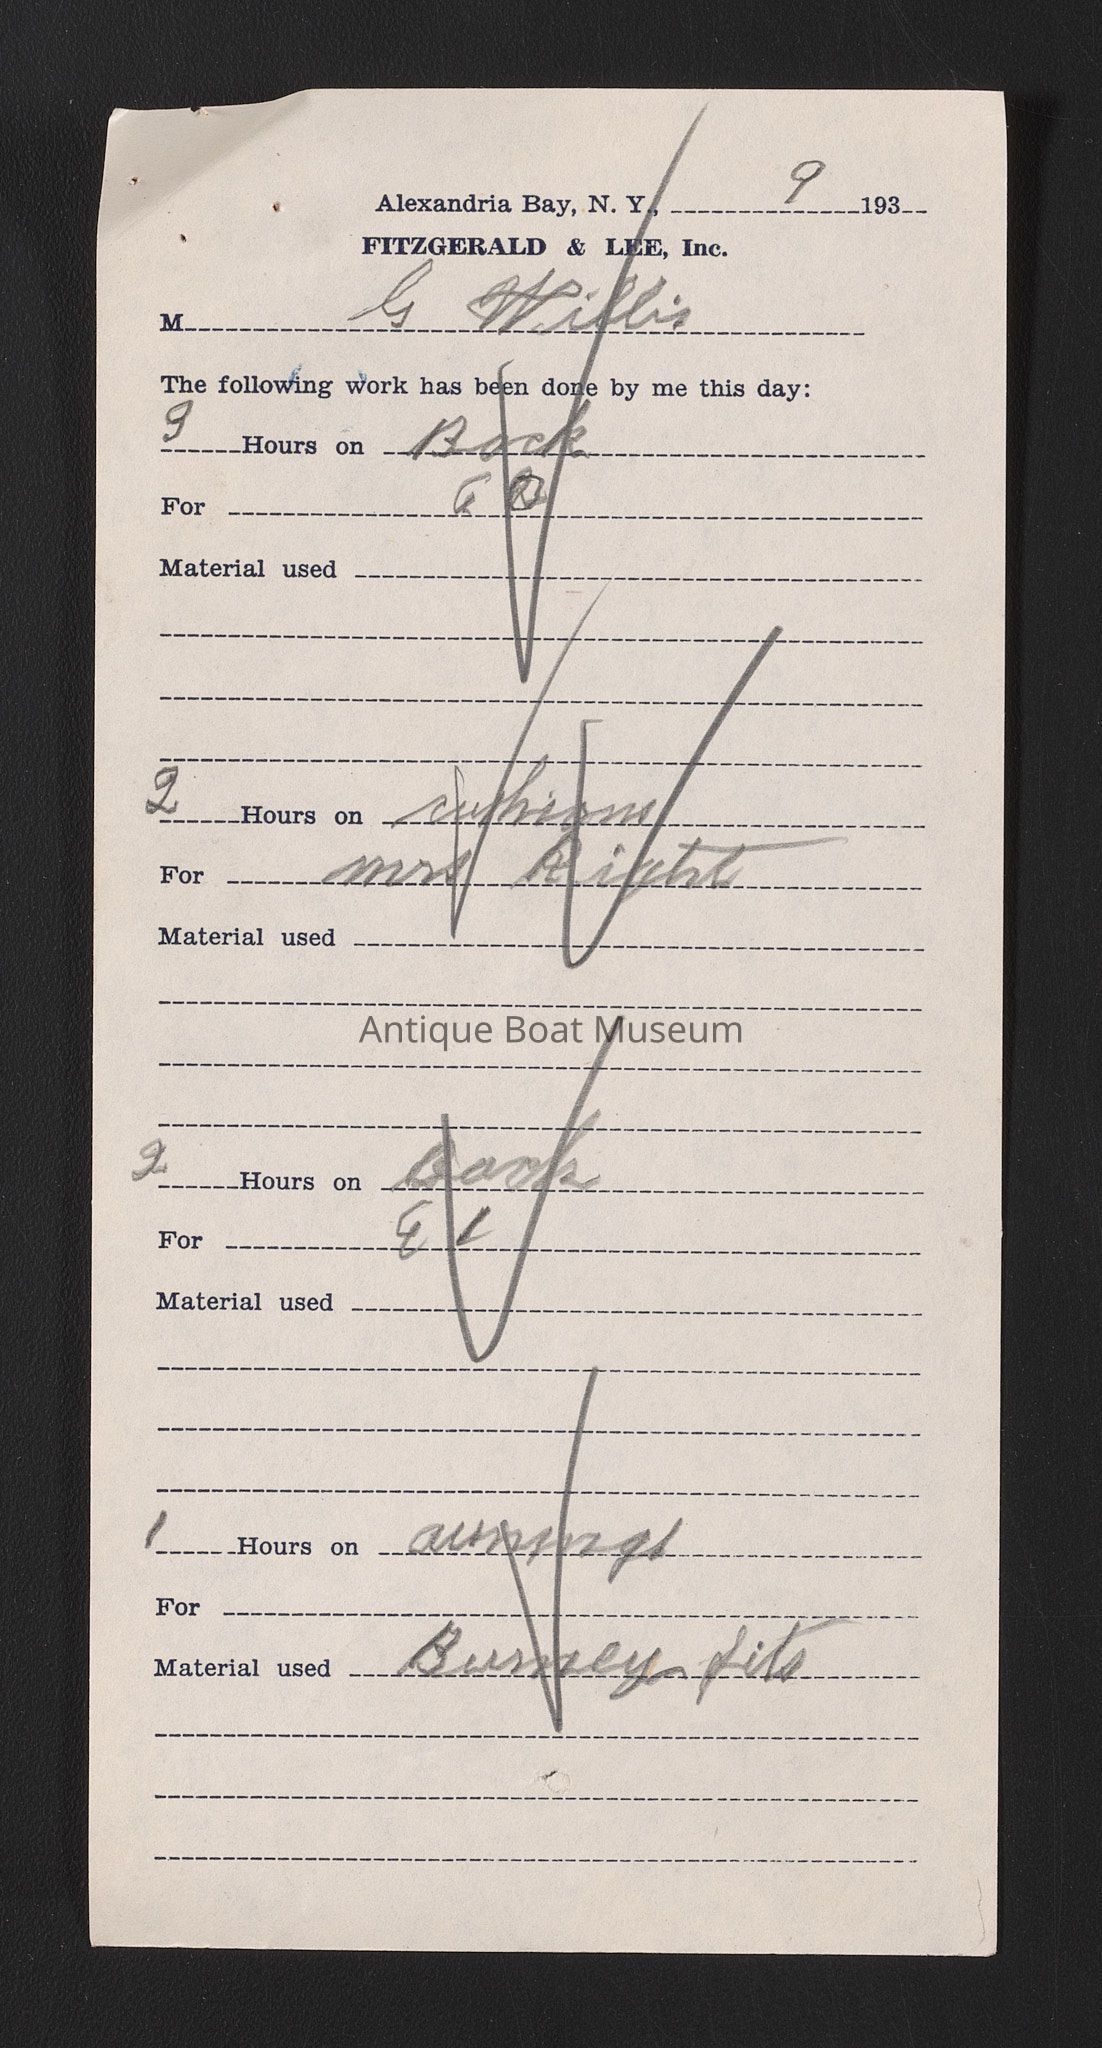 Alexandria Bay, N. Y., 9 193
FITZGERALD & LEE, Inc.
M G Willis
The following work has been done by me this day:
3 Hours on Back
For
Material used
2 Hours on cushions
For mrs Right
Material used
Antique Boat Museum
2 Hours on
For E L
Material used
1 Hours on
For
Material used Burney fits